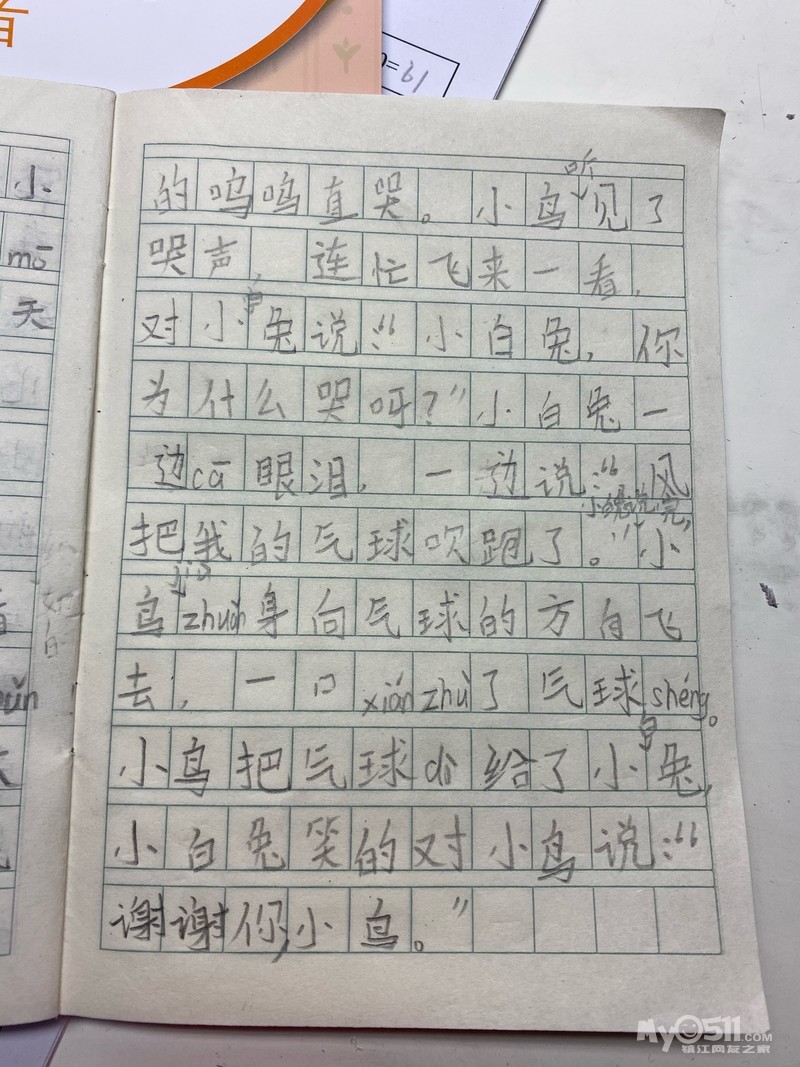 者
=61
小
mō
天
的呜呜直哭。小鸟听见了
哭声,连忙飞来一看,
对小白兔说:“小白兔,你
为什么哭呀?”小白兔一
边cā眼泪,一边说:“风
把我的气球吹跑了。”小白兔说完,小
鸟jiù zhuǎn身向气球的方向飞
去,一口xián zhù了气球shéng。
小鸟把气球dì给了小白兔,
小白兔笑的对小鸟说:“
谢谢你,小鸟。”
My0511.com
镇江网友之家